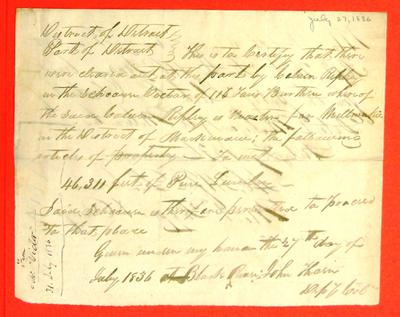 July 27, 1836
District of Detroit
Port of Detroit } This is to Certify that there
were cleared out at this port by Calvin Ripley
in the Schooner Victor of 115 Tons Burthen whereof
the said Calvin Ripley is Master for Millwakie
in the District of Mackinaw; the following
articles of property — To wit
46,311 feet of Pine Lumber
Said Schooner is therefore permitted to proceed
to that place
Given under my hand the 27th day of
July 1836 at Black River; John Thorn
Depy Col
31 July 1836